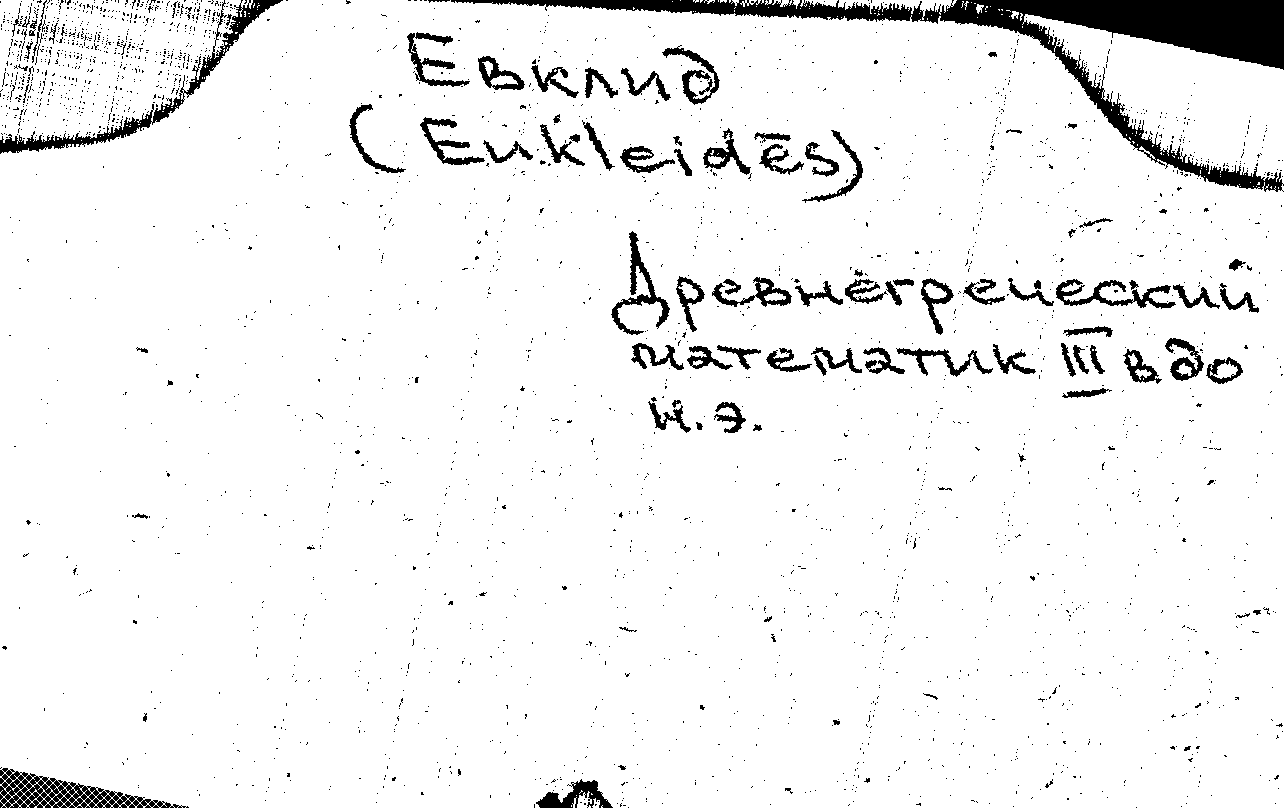 Евклид
(Eukleidēs)
Древнегреческий
математик III в до
н.э.